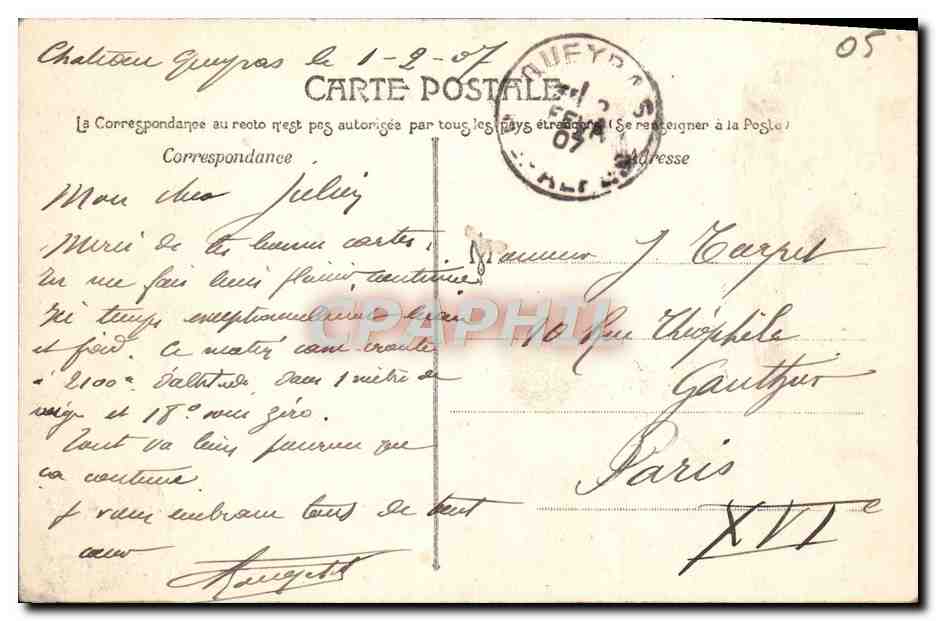 Chateau Queyras le 1-2-07
05
QUEYRAS
FEVR
07
CARTE POSTALE
La Correspondance au recto n'est pas autorisée par tous les pays étrangers (Se renseigner à la Poste)
Correspondance
Adresse
Mon cher Julien
Merci de tes bonnes cartes,
tu me fais bien plaisir, continue
Ici temps exceptionnellement beau
et froid. Ce matin
à 2100m d'altitude dans 1 mètre de
neige et 18° sous zéro.
Tout va bien pourvu que
ça continue.
Je vous embrasse tous de tout
coeur
Monsieur J. Tarpet
10 Rue Théophile
Gauthier
Paris
XVIe
CPAPHIL